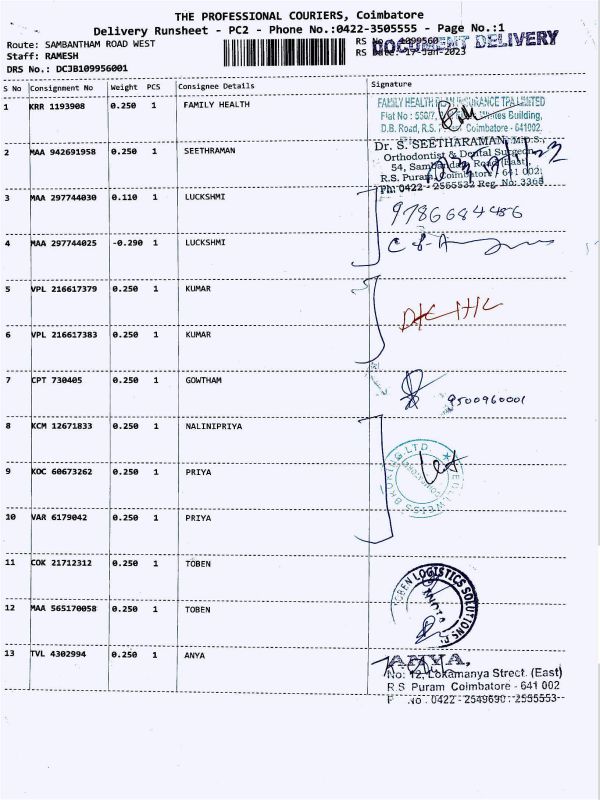 THE PROFESSIONAL COURIERS, Coimbatore
Delivery Runsheet - PC2 - Phone No.:0422-3505555 - Page No.:1
Route: SAMBANTHAM ROAD WEST
RS No.: 1099560
DOCUMENT DELIVERY
Staff: RAMESH
RS Date: 17-Jan-2023
DRS No.: DCJB109956001
S No Consignment No Weight PCS Consignee Details Signature
1 KRR 1193908 0.250 1 FAMILY HEALTH
FAMILY HEALTH PLAN INSURANCE TPA LIMITED
Flat No : 550/7, Building,
D.B. Road, R.S. Coimbatore - 641002.
2 MAA 942691958 0.250 1 SEETHRAMAN
Dr. S. SEETHARAMAN, M.D.S.,
Orthodontist & Dental Surgeon
54, Sambandam Road (East),
R.S. Puram, Coimbatore - 641 002.
Ph: 0422 - 2566532 Reg. No: 3365
3 MAA 297744030 0.110 1 LUCKSHMI
9786684486
4 MAA 297744025 -0.290 1 LUCKSHMI
5 VPL 216617379 0.250 1 KUMAR
6 VPL 216617383 0.250 1 KUMAR
7 CPT 730405 0.250 1 GOWTHAM
9500960001
8 KCM 12671833 0.250 1 NALINIPRIYA
9 KOC 60673262 0.250 1 PRIYA
10 VAR 6179042 0.250 1 PRIYA
11 COK 21712312 0.250 1 TOBEN
TOBEN LOGISTICS SOLUTIONS
12 MAA 565170058 0.250 1 TOBEN
13 TVL 4302994 0.250 1 ANYA
No: 12, Lokamanya Street. (East)
R.S Puram Coimbatore - 641 002
P .No . 0422 - 2549690 . 2555553